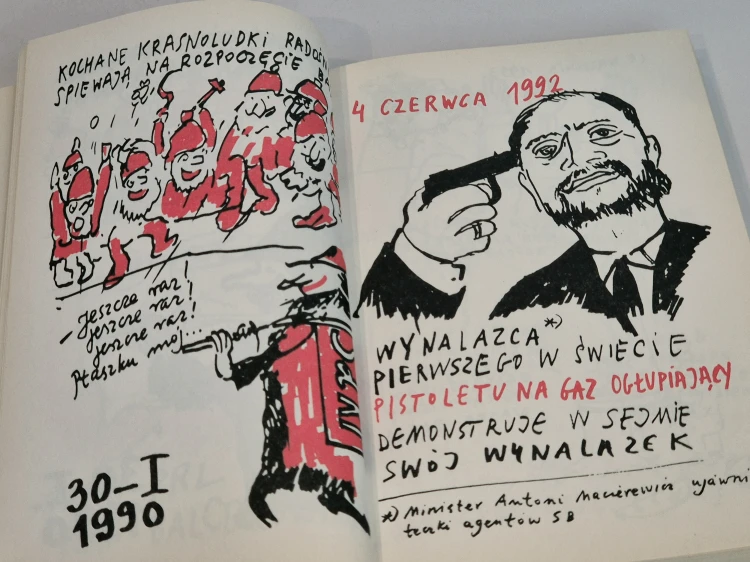 KOCHANE KRASNOLUDKI
ŚPIEWAJĄ NA ROZPOCZĘCIE
- jeszcze raz!
jeszcze raz!
jeszcze raz!
Ptaszku mój...
30-I
1990
4 CZERWCA 1992
WYNALAZCA *)
PIERWSZEGO W ŚWIECIE
PISTOLETU NA GAZ OGŁUPIAJĄCY
DEMONSTRUJE W SEJMIE
SWÓJ WYNALAZEK
*) Minister Antoni Macierewicz ujawni
teczki agentów SB